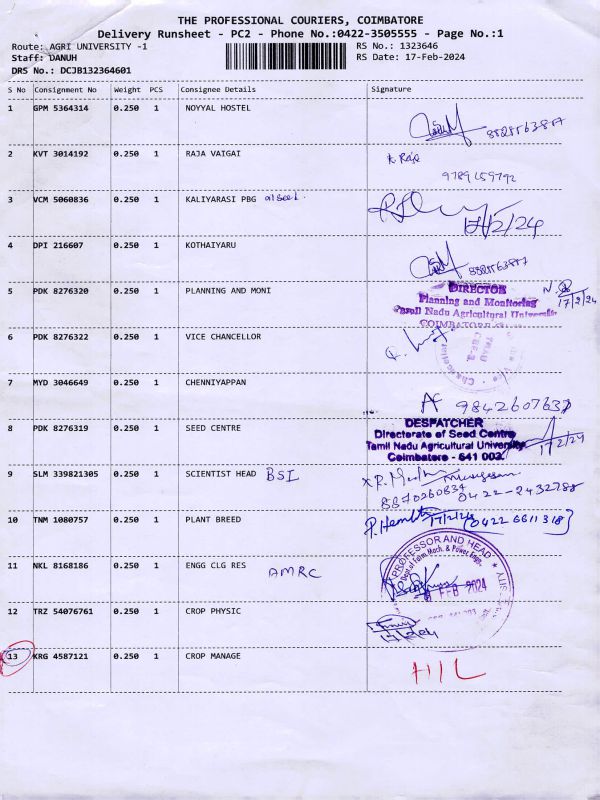 THE PROFESSIONAL COURIERS, COIMBATORE
Delivery Runsheet - PC2 - Phone No.:0422-3505555 - Page No.:1
Route: AGRI UNIVERSITY -1 RS No.: 1323646
Staff: DANUH RS Date: 17-Feb-2024
DRS No.: DCJB132364601
S No Consignment No Weight PCS Consignee Details Signature
1 GPM 5364314 0.250 1 NOYYAL HOSTEL
2 KVT 3014192 0.250 1 RAJA VAIGAI
9789159792
3 VCM 5060836 0.250 1 KALIYARASI PBG oil seed
17/2/24
4 DPI 216607 0.250 1 KOTHAIYARU
5 PDK 8276320 0.250 1 PLANNING AND MONI
DIRECTOR
Planning and Monitoring 17/2/24
Tamil Nadu Agricultural University
COIMBATORE
6 PDK 8276322 0.250 1 VICE CHANCELLOR
7 MYD 3046649 0.250 1 CHENNIYAPPAN
9842607637
8 PDK 8276319 0.250 1 SEED CENTRE
DESPATCHER
Directorate of Seed Centre
Tamil Nadu Agricultural University 17/2/24
Coimbatore - 641 003.
9 SLM 339821305 0.250 1 SCIENTIST HEAD BSI
8870260834 0422-2432788
10 TNM 1080757 0.250 1 PLANT BREED
17/2/24 (0422 6611318)
11 NKL 8168186 0.250 1 ENGG CLG RES
AMRC
PROFESSOR AND HEAD
Dept. of Farm Mach. & Power Engg.
FEB 2024
12 TRZ 54076761 0.250 1 CROP PHYSIC
17/2/24
13 KRG 4587121 0.250 1 CROP MANAGE